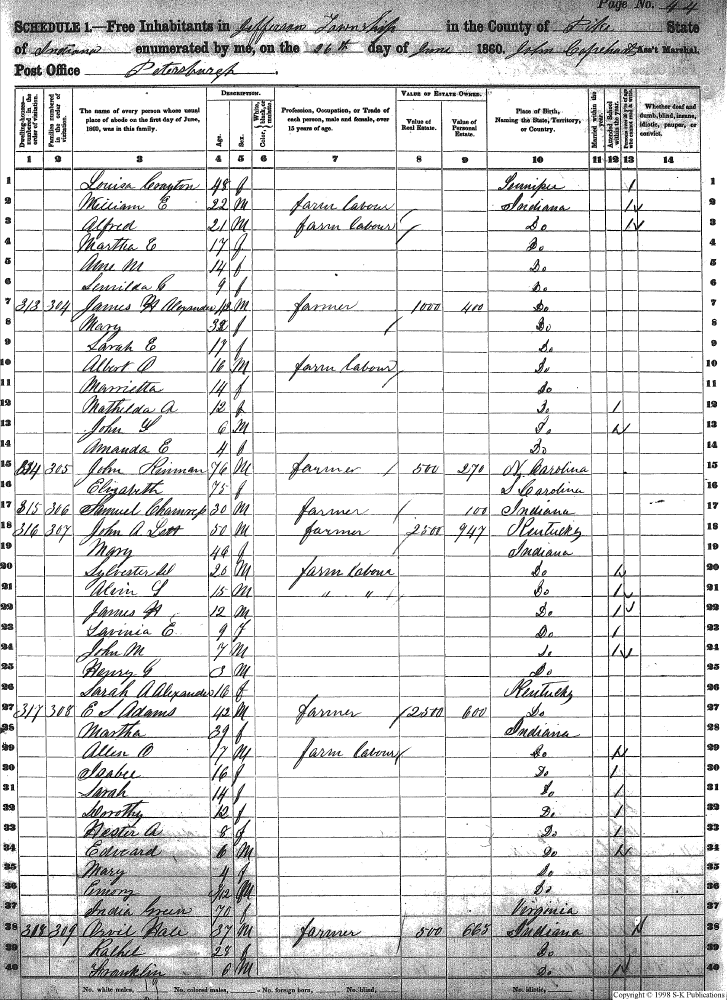 Page No. 44
SCHEDULE 1.—Free Inhabitants in Jefferson Township in the County of Pike State
of Indiana enumerated by me, on the 26th day of June 1860. John Capehart Ass't Marshal.
Post Office Petersburgh
Dwelling-houses—numbered in the order of visitation.
Families numbered in the order of visitation.
The name of every person whose usual place of abode on the first day of June, 1860, was in this family.
DESCRIPTION.
Age.
Sex.
Color, White, black, or mulatto.
Profession, Occupation, or Trade of each person, male and female, over 15 years of age.
VALUE OF ESTATE OWNED.
Value of Real Estate.
Value of Personal Estate.
Place of Birth, Naming the State, Territory, or Country.
Married within the year.
Attended School within the year.
Whether deaf and dumb, blind, insane, idiotic, pauper, or convict.
1 2 3 4 5 6 7 8 9 10 11 12 13 14
1 Louisa Crayton 48 f 1 1
2 William E 22 M farm labour Indiana 1 2
3 Alfred 21 M farm labour Do 1 3
4 Martha E 17 f Do 4
5 Ame M 14 f Do 5
6 9 f Do 6
7 313 304 James H Alexander 42 M farmer 1000 400 Do 7
8 Mary 32 f Do 8
9 Sarah E 17 f Do 9
10 Albert O 16 M farm labour Do 10
11 Marrietta 14 f Do 11
12 Mathilda A 12 f Do 1 12
13 John 6 M Do 1 13
14 Amanda E 4 f Do 14
15 314 305 John Kinman 76 M farmer 500 270 N Carolina 15
16 Elizabeth 75 f S Carolina 16
17 315 306 Samuel 30 M farmer 100 Indiana 17
18 316 307 John A Lett 50 M farmer 2500 947 Kentucky 18
19 Mary 46 f Indiana 19
20 Sylvester 20 M farm labour Do 1 20
21 Alvin 15 M " " Do 1 21
22 James H 12 M Do 1 22
23 Savinia E 9 f Do 1 23
24 John M 7 M Do 1 24
25 Henry G 3 M Do 25
26 Sarah A Alexander 16 f Kentucky 26
27 317 308 E S Adams 42 M farmer 2500 600 Do 27
28 Martha 39 f Indiana 28
29 Allen O 17 M farm labour Do 1 29
30 Isabel 16 f Do 1 30
31 Sarah 14 f Do 1 31
32 Dorothy 12 f Do 1 32
33 Hester A 8 f Do 1 33
34 Edward 6 M Do 1 34
35 Mary 4 f Do 35
36 Emory M Do 36
37 India Green 70 f Virginia 37
38 318 309 Arvil Hale 37 M farmer 500 663 Indiana 38
39 Rathel 28 f Do 39
40 Franklin 6 M Do 1 40
No. white males, 19 No. colored males, No. foreign born, No. blind, No. idiotic,
Copyright © 1998 S-K Publications